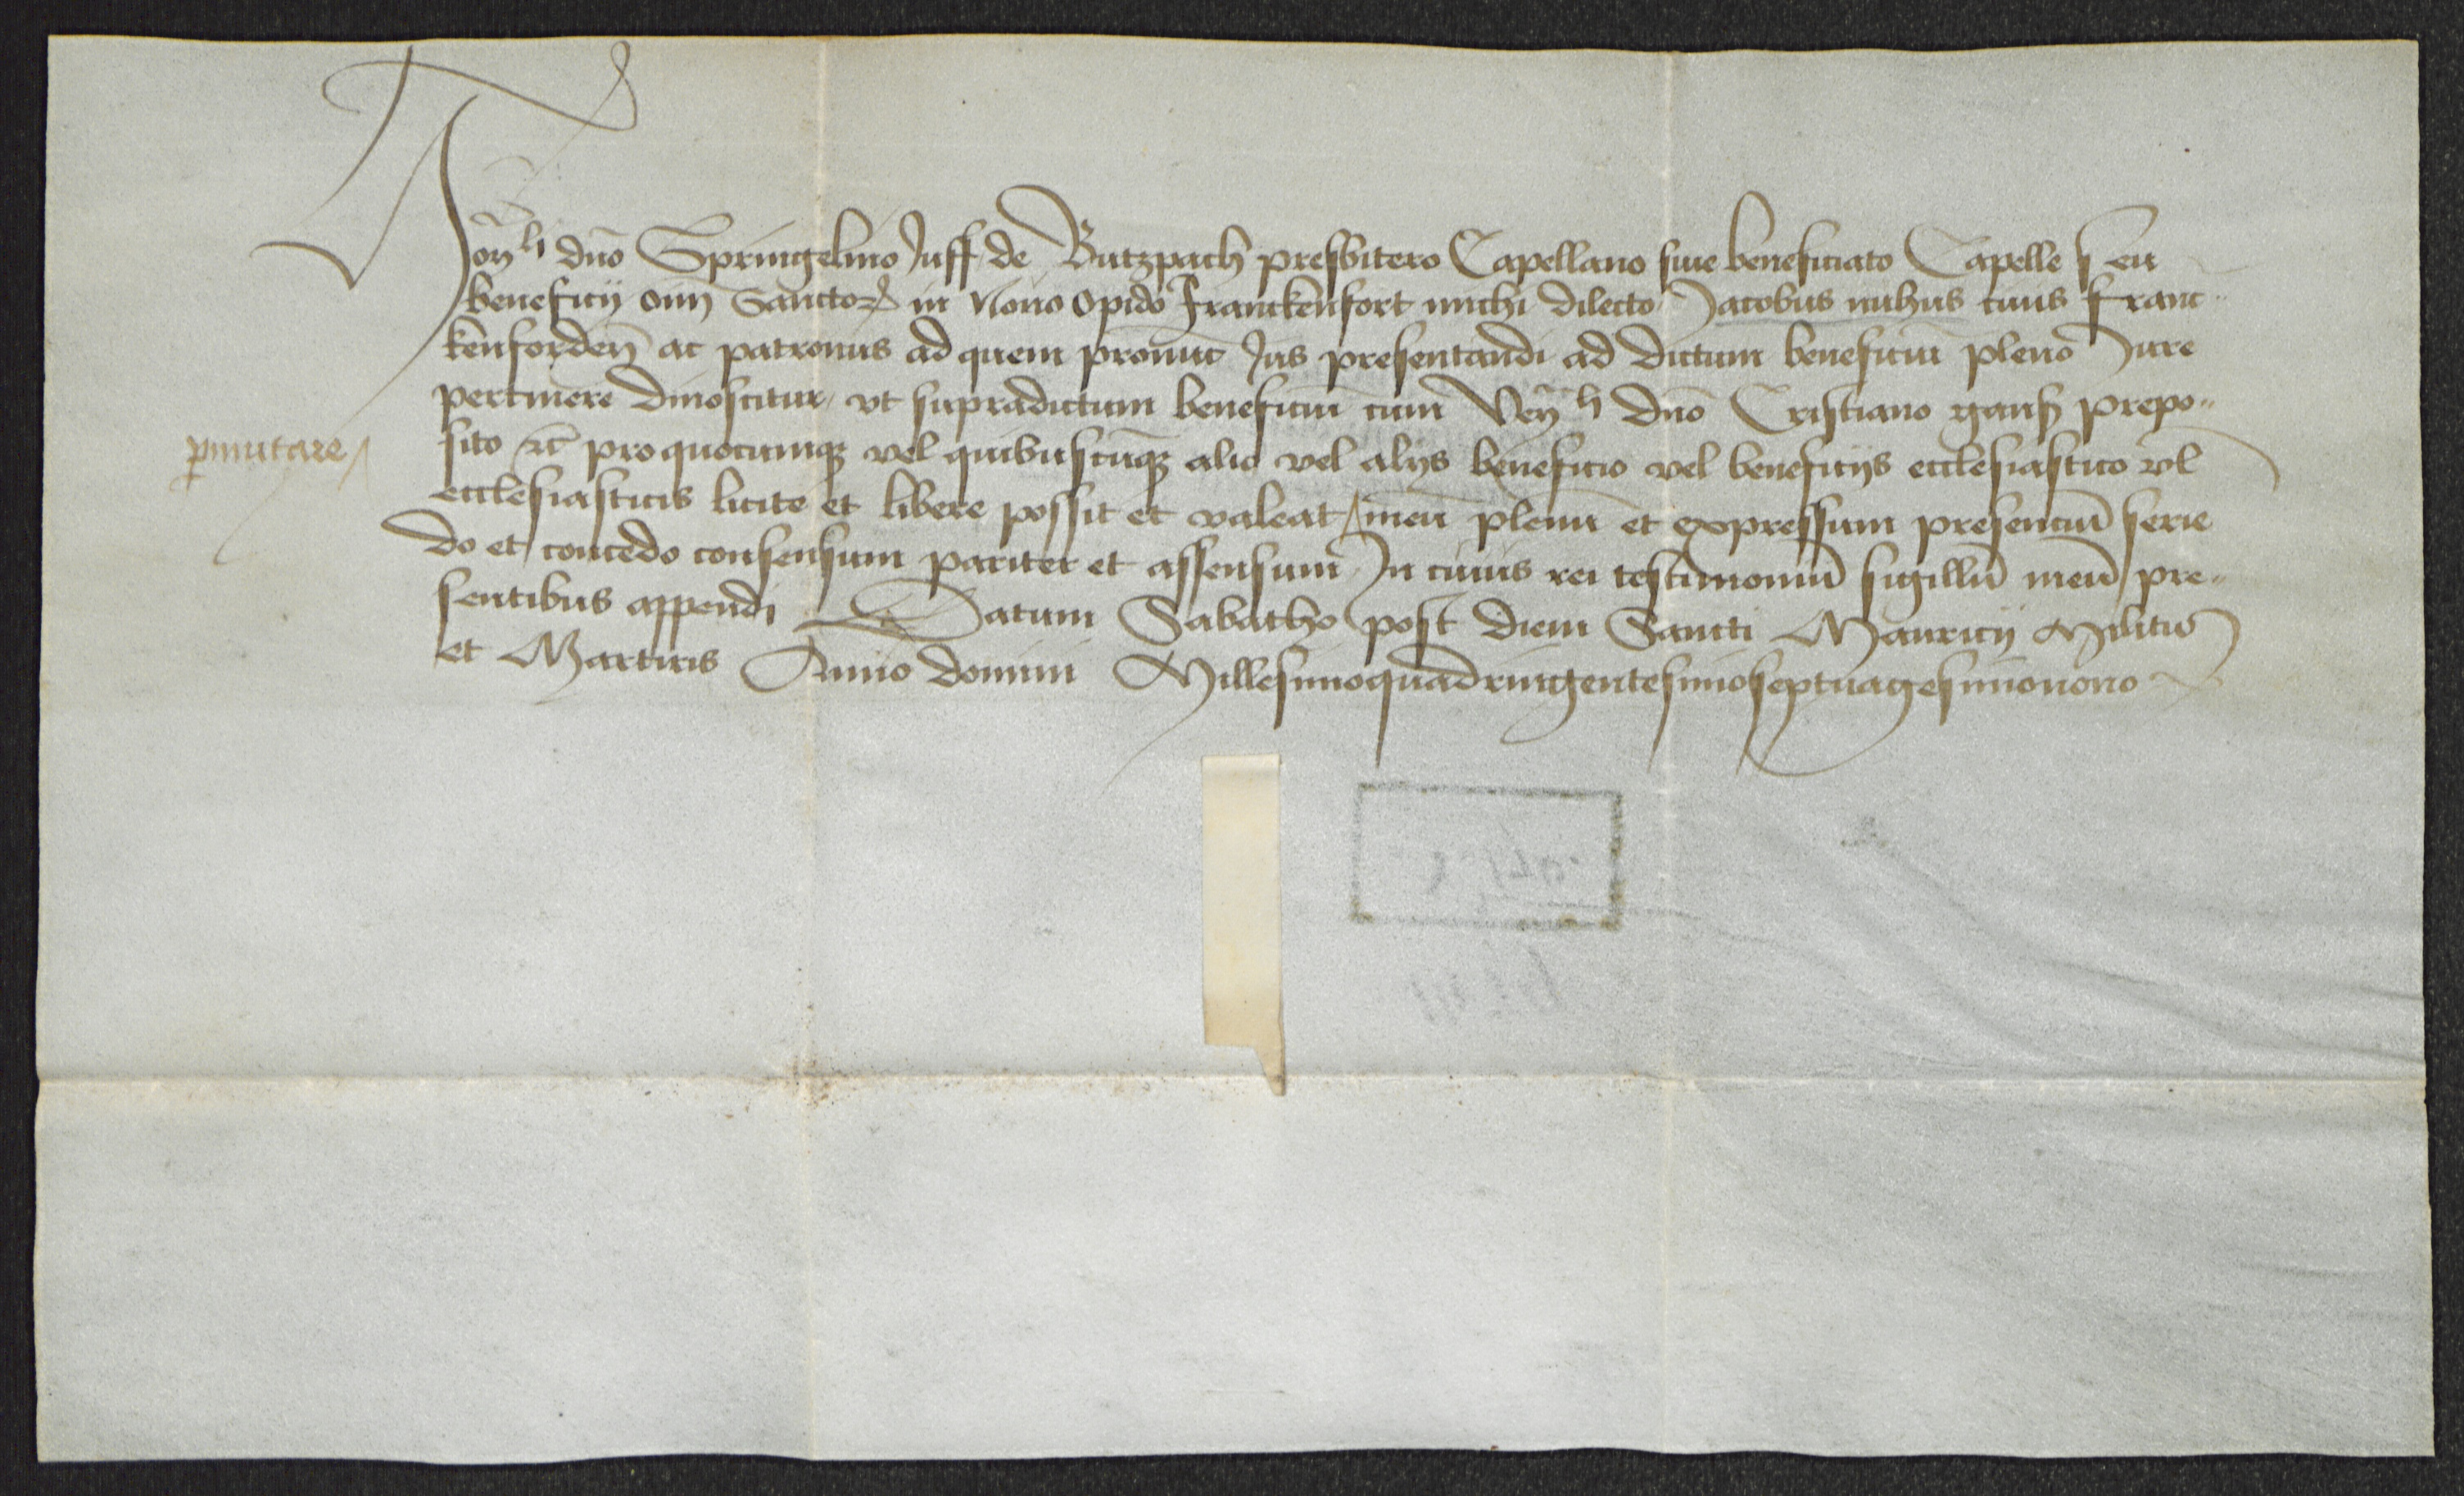 Hon̄ li dn̄o Springelino Juff de Butzpach presbitero Capellano siue beneficiato Capelle seu
beneficij oīm Sanctoꝝ in Nouo opido Franckenfort michi dilecto Jacobus nuhus ciuis Franc-
kenforden̄ ac patronus ad quem pronūc Jus presentandi ad dictum beneficiū pleno Jure
pertinere dinoscitur, vt supradictum beneficiū cum Ven̄ li dn̄o Cristiano gansz prepo-
sito ꝛc̄ pro quocumqꝫ vel quibuscūqꝫ alio vel alijs beneficio vel beneficijs ecclesiastico vl̄
ecclesiasticis licite et libere possit et valeat / meū plenū et expressum presenciū serie
do et concedo consensum pariter et assensum In cuius rei testimoniū sigillū meū pre-
sentibus appendi Datum Sabatho post diem Sancti Mauricij Militis
et Martiris Anno domini Millesimoquadringentesimoseptuagesimonono
ꝑmutare /